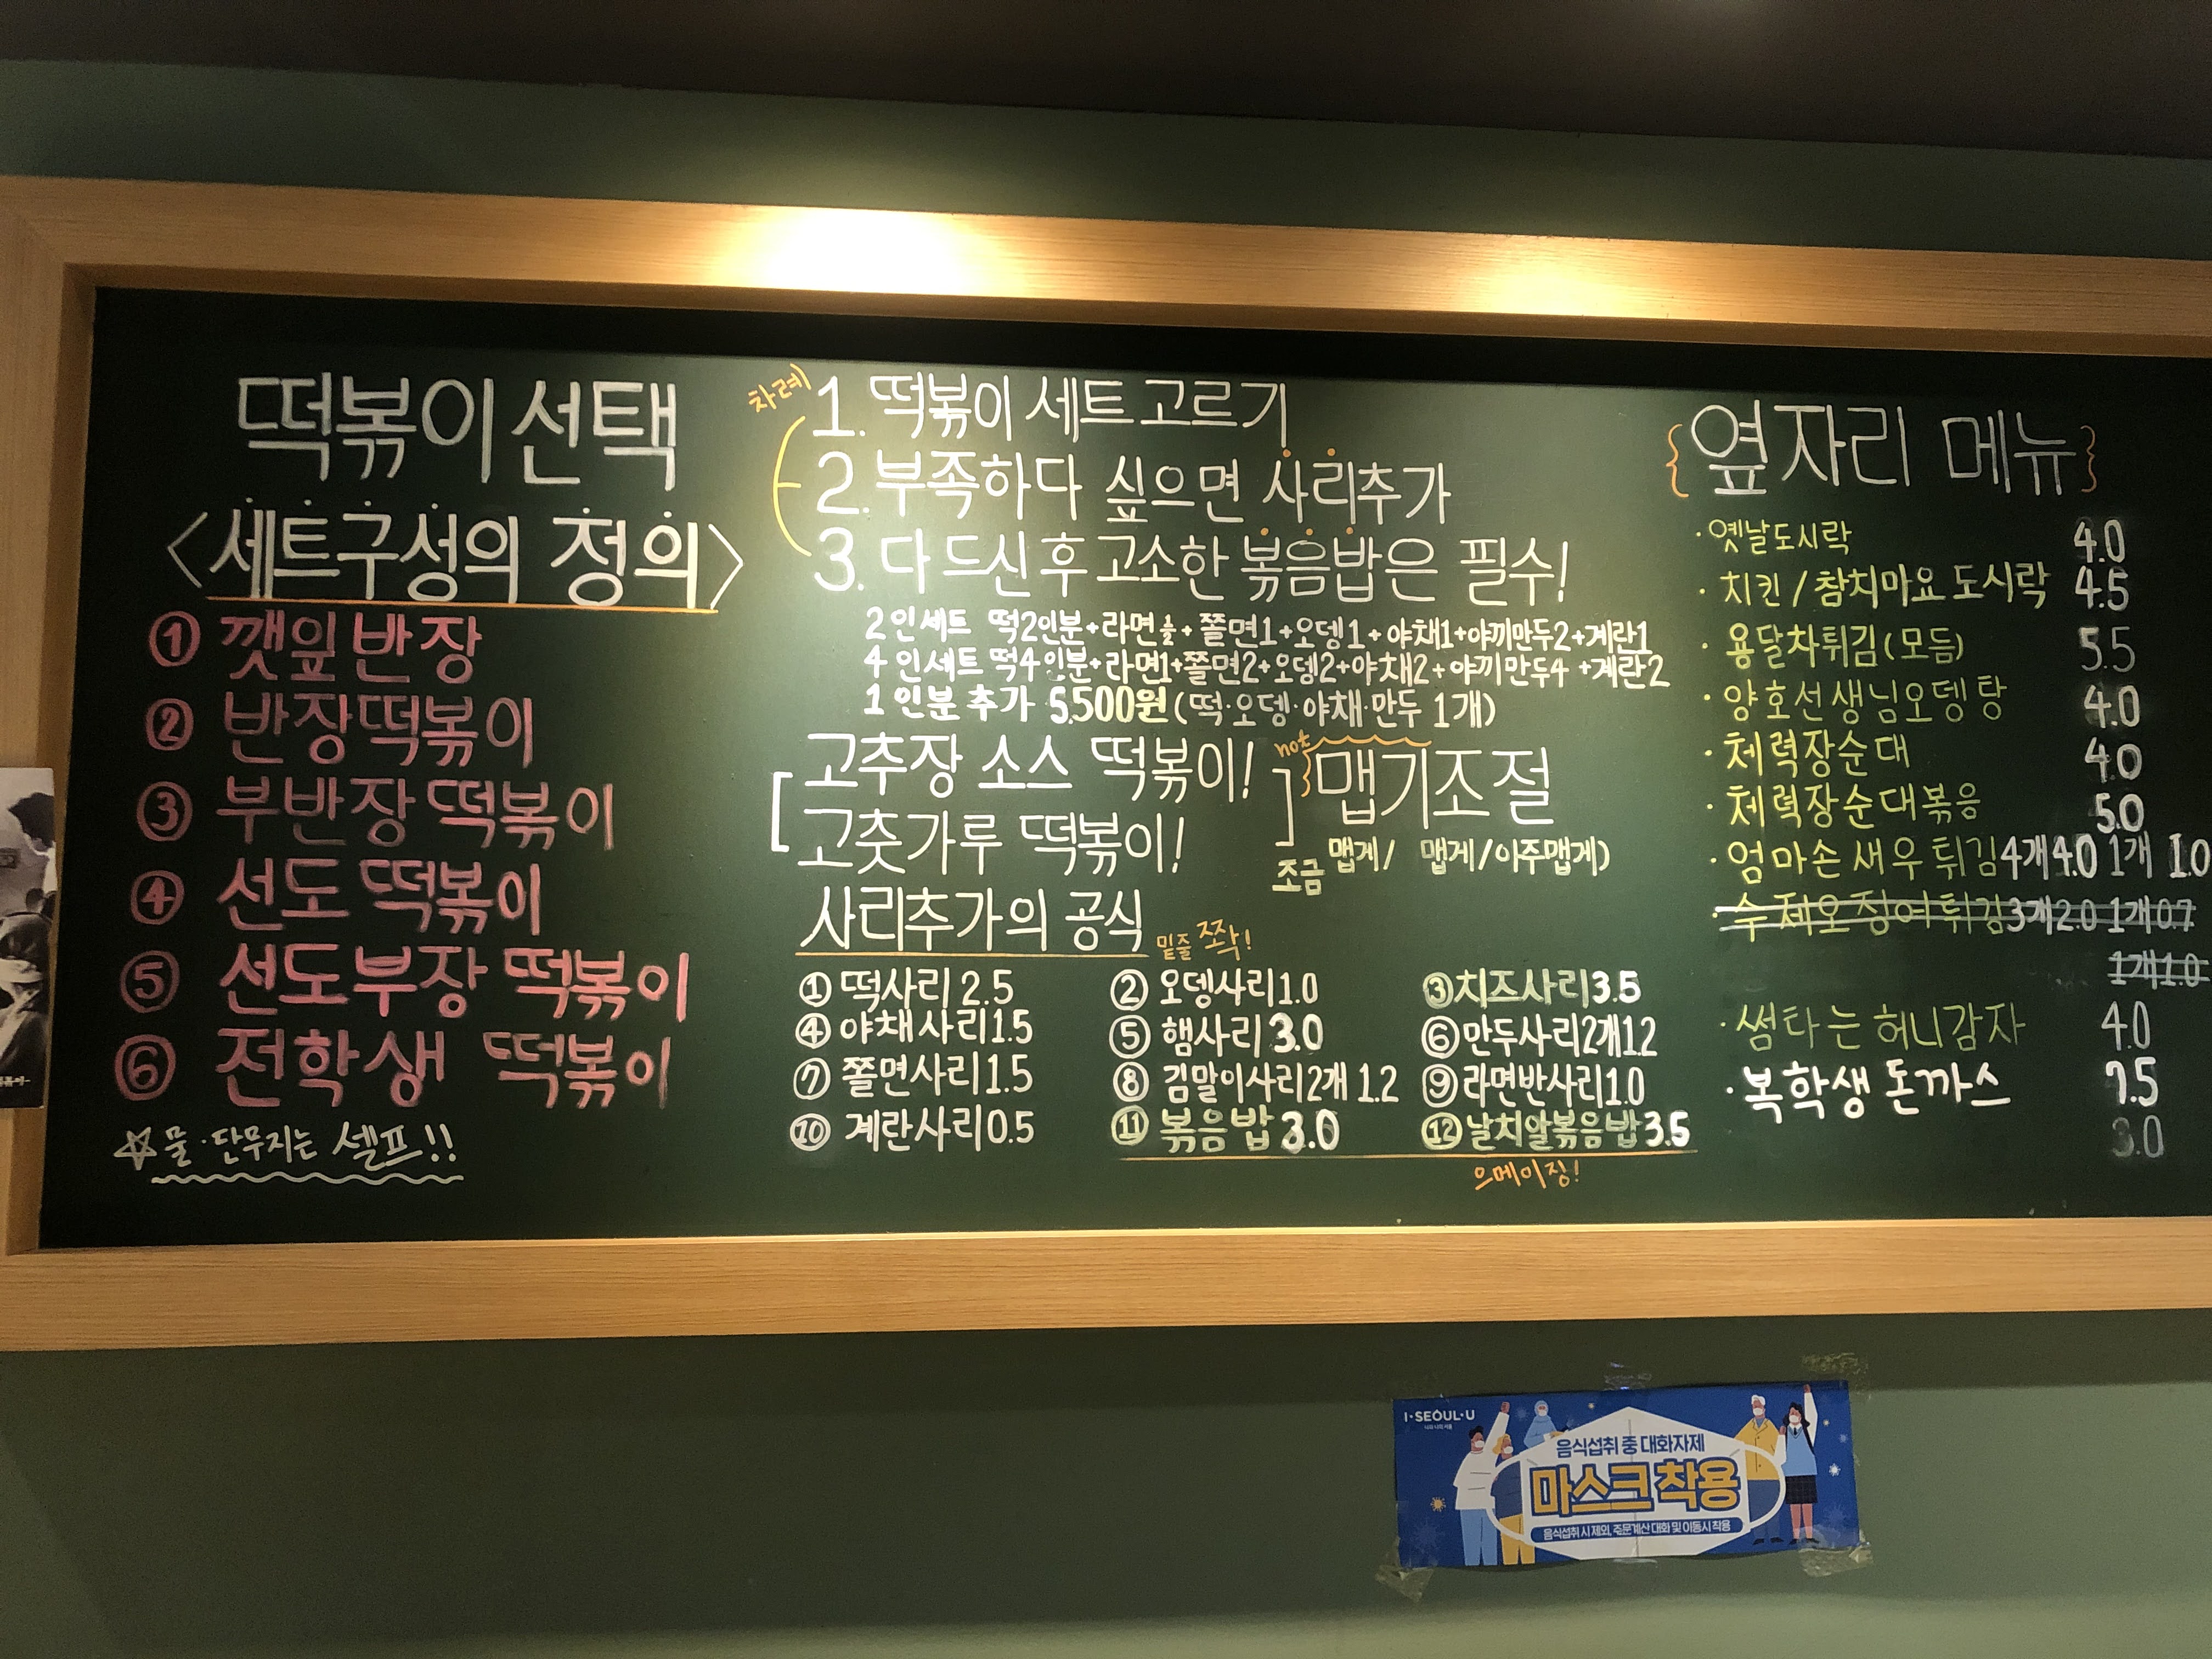 떡볶이 선택
<세트구성의 정의>
① 깻잎 반장
② 반장떡볶이
③ 부반장 떡볶이
④ 선도 떡볶이
⑤ 선도부장 떡볶이
⑥ 전학생 떡볶이
☆ 물·단무지는 셀프!!
차례)
1. 떡볶이 세트 고르기
2. 부족하다 싶으면 사리추가
3. 다 드신 후 고소한 볶음밥은 필수!
2인세트 떡2인분+라면½+쫄면1+오뎅1+야채1+야끼만두2+계란1
4인세트 떡4인분+라면1+쫄면2+오뎅2+야채2+야끼만두4+계란2
1인분 추가 5,500원(떡·오뎅·야채·만두 1개)
[고추장 소스 떡볶이!
고춧가루 떡볶이!]
hot
맵기조절
조금 맵게/ 맵게/아주맵게)
사리추가의 공식
밑줄 쫙!
① 떡사리 2.5 ② 오뎅사리 1.0 ③ 치즈사리 3.5
④ 야채사리 1.5 ⑤ 햄사리 3.0 ⑥ 만두사리2개 1.2
⑦ 쫄면사리 1.5 ⑧ 김말이사리2개 1.2 ⑨ 라면반사리 1.0
⑩ 계란사리 0.5 ⑪ 볶음밥 3.0 ⑫ 날치알볶음밥 3.5
으메이징!
{옆자리 메뉴}
·옛날도시락 4.0
·치킨/참치마요 도시락 4.5
·용달차튀김(모듬) 5.5
·양호선생님오뎅탕 4.0
·체력장순대 4.0
·체력장순대볶음 5.0
·엄마손 새우튀김 4개4.0 1개 1.0
·수제오징어튀김 3개2.0 1개0.7
1개1.0
·썸타는 허니감자 4.0
·복학생 돈까스 7.5
3.0
I·SEOUL·U
너와 나의 서울
음식섭취 중 대화자제
마스크 착용
음식섭취 시 제외, 주문계산 대화 및 이동시 착용